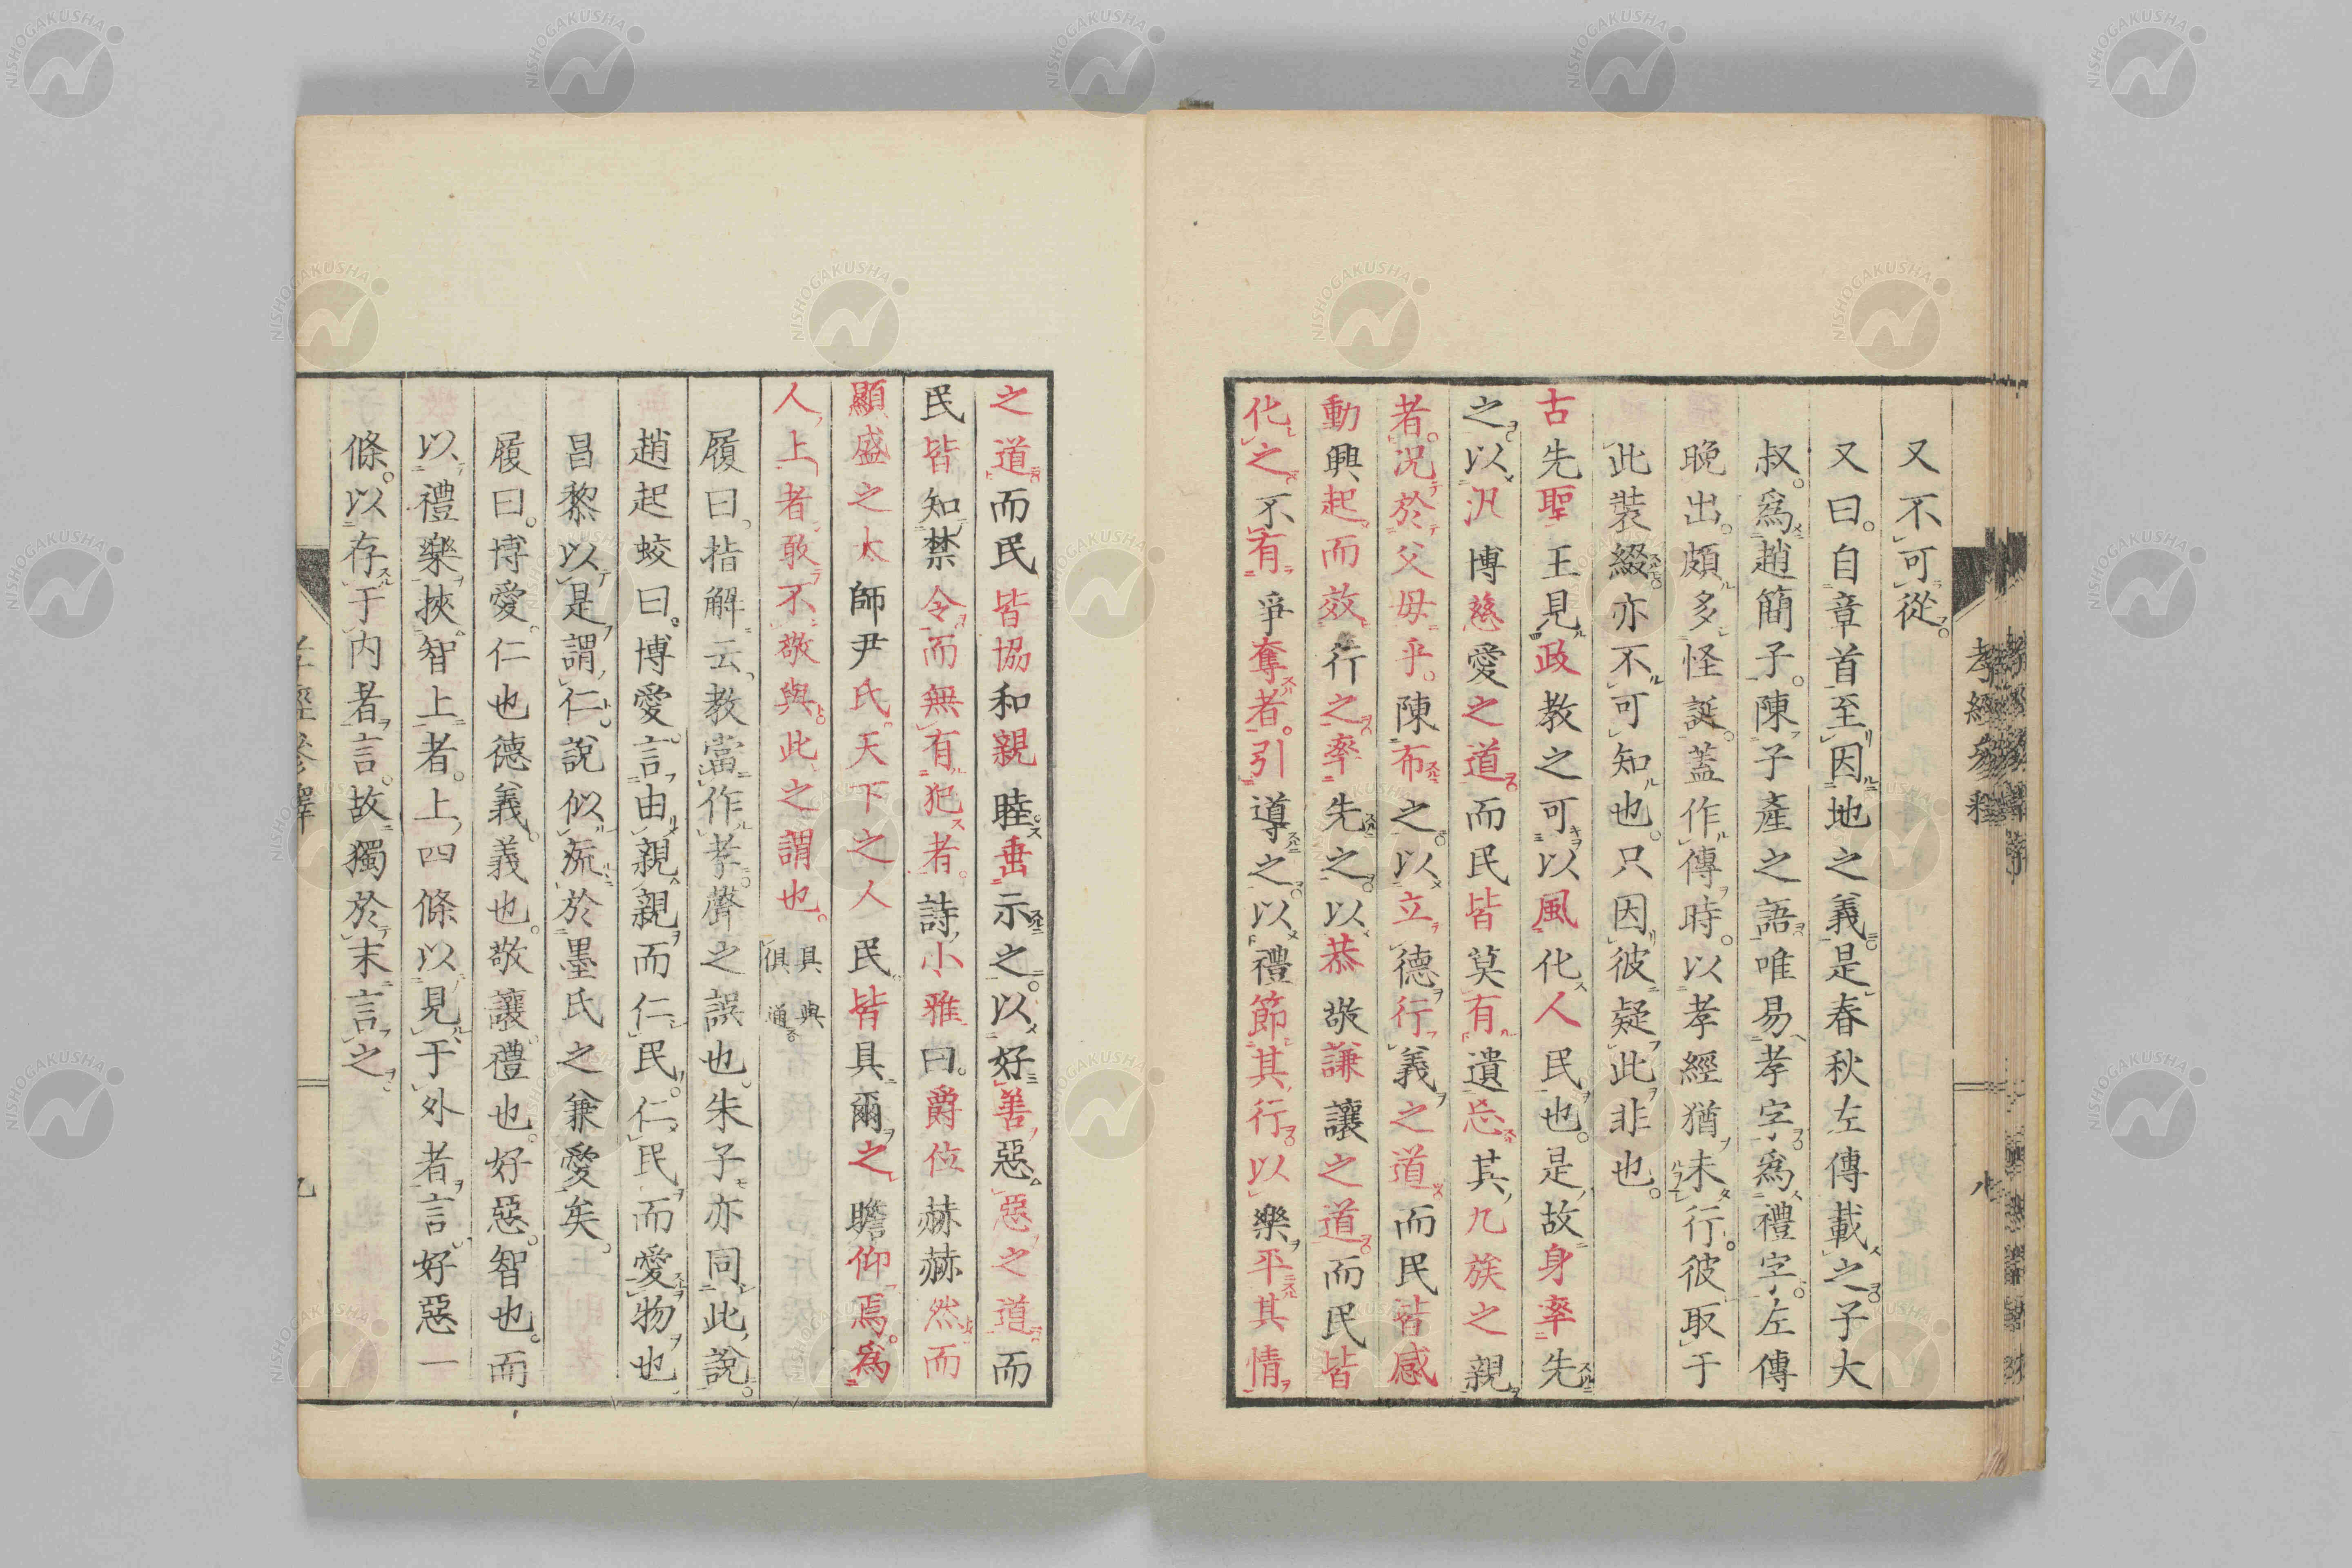 又不可從。
又曰。自章首至因地之義。是春秋左傳載之子大
叔。爲趙簡子。陳子產之語。唯易孝字。爲禮字。左傳
晩出。頗多怪誕。蓋作傳時。以孝經猶未行。彼取于
此裝綴。亦不可知也。只因彼疑此非也。
古先聖王見政教之可以風化人民也。是故身率先
之。以汎博慈愛之道。而民皆莫有遺忘其九族之親
者。況於父母乎。陳布之。以立德行義之道。而民皆感
動興起而效行之。率先之。以恭敬謙讓之道。而民皆
化之。不有爭奪者。引導之。以禮節其行。以樂平其情
孝經參釋
八
之道。而民皆協和親睦。垂示之。以好善惡惡之道。而
民皆知禁令而無有犯者。詩小雅曰。爵位赫赫然而
顯盛之太師尹氏。天下之人民。皆具爾之瞻仰焉。爲
人上者。敢不敬與。此之謂也。具與俱通
履曰。指解云。教當作孝。聲之誤也。朱子亦同此說。
趙起蛟曰。博愛言由親親而仁民。仁民而愛物也。
昌黎以是謂仁。說似流於墨氏之兼愛矣。
履曰。博愛。仁也。德義。義也。敬讓。禮也。好惡。智也。而
以禮樂挾智上者。上四條以見于外者言。好惡一
條。以存于内者言。故獨於末言之。
孝經參釋
九